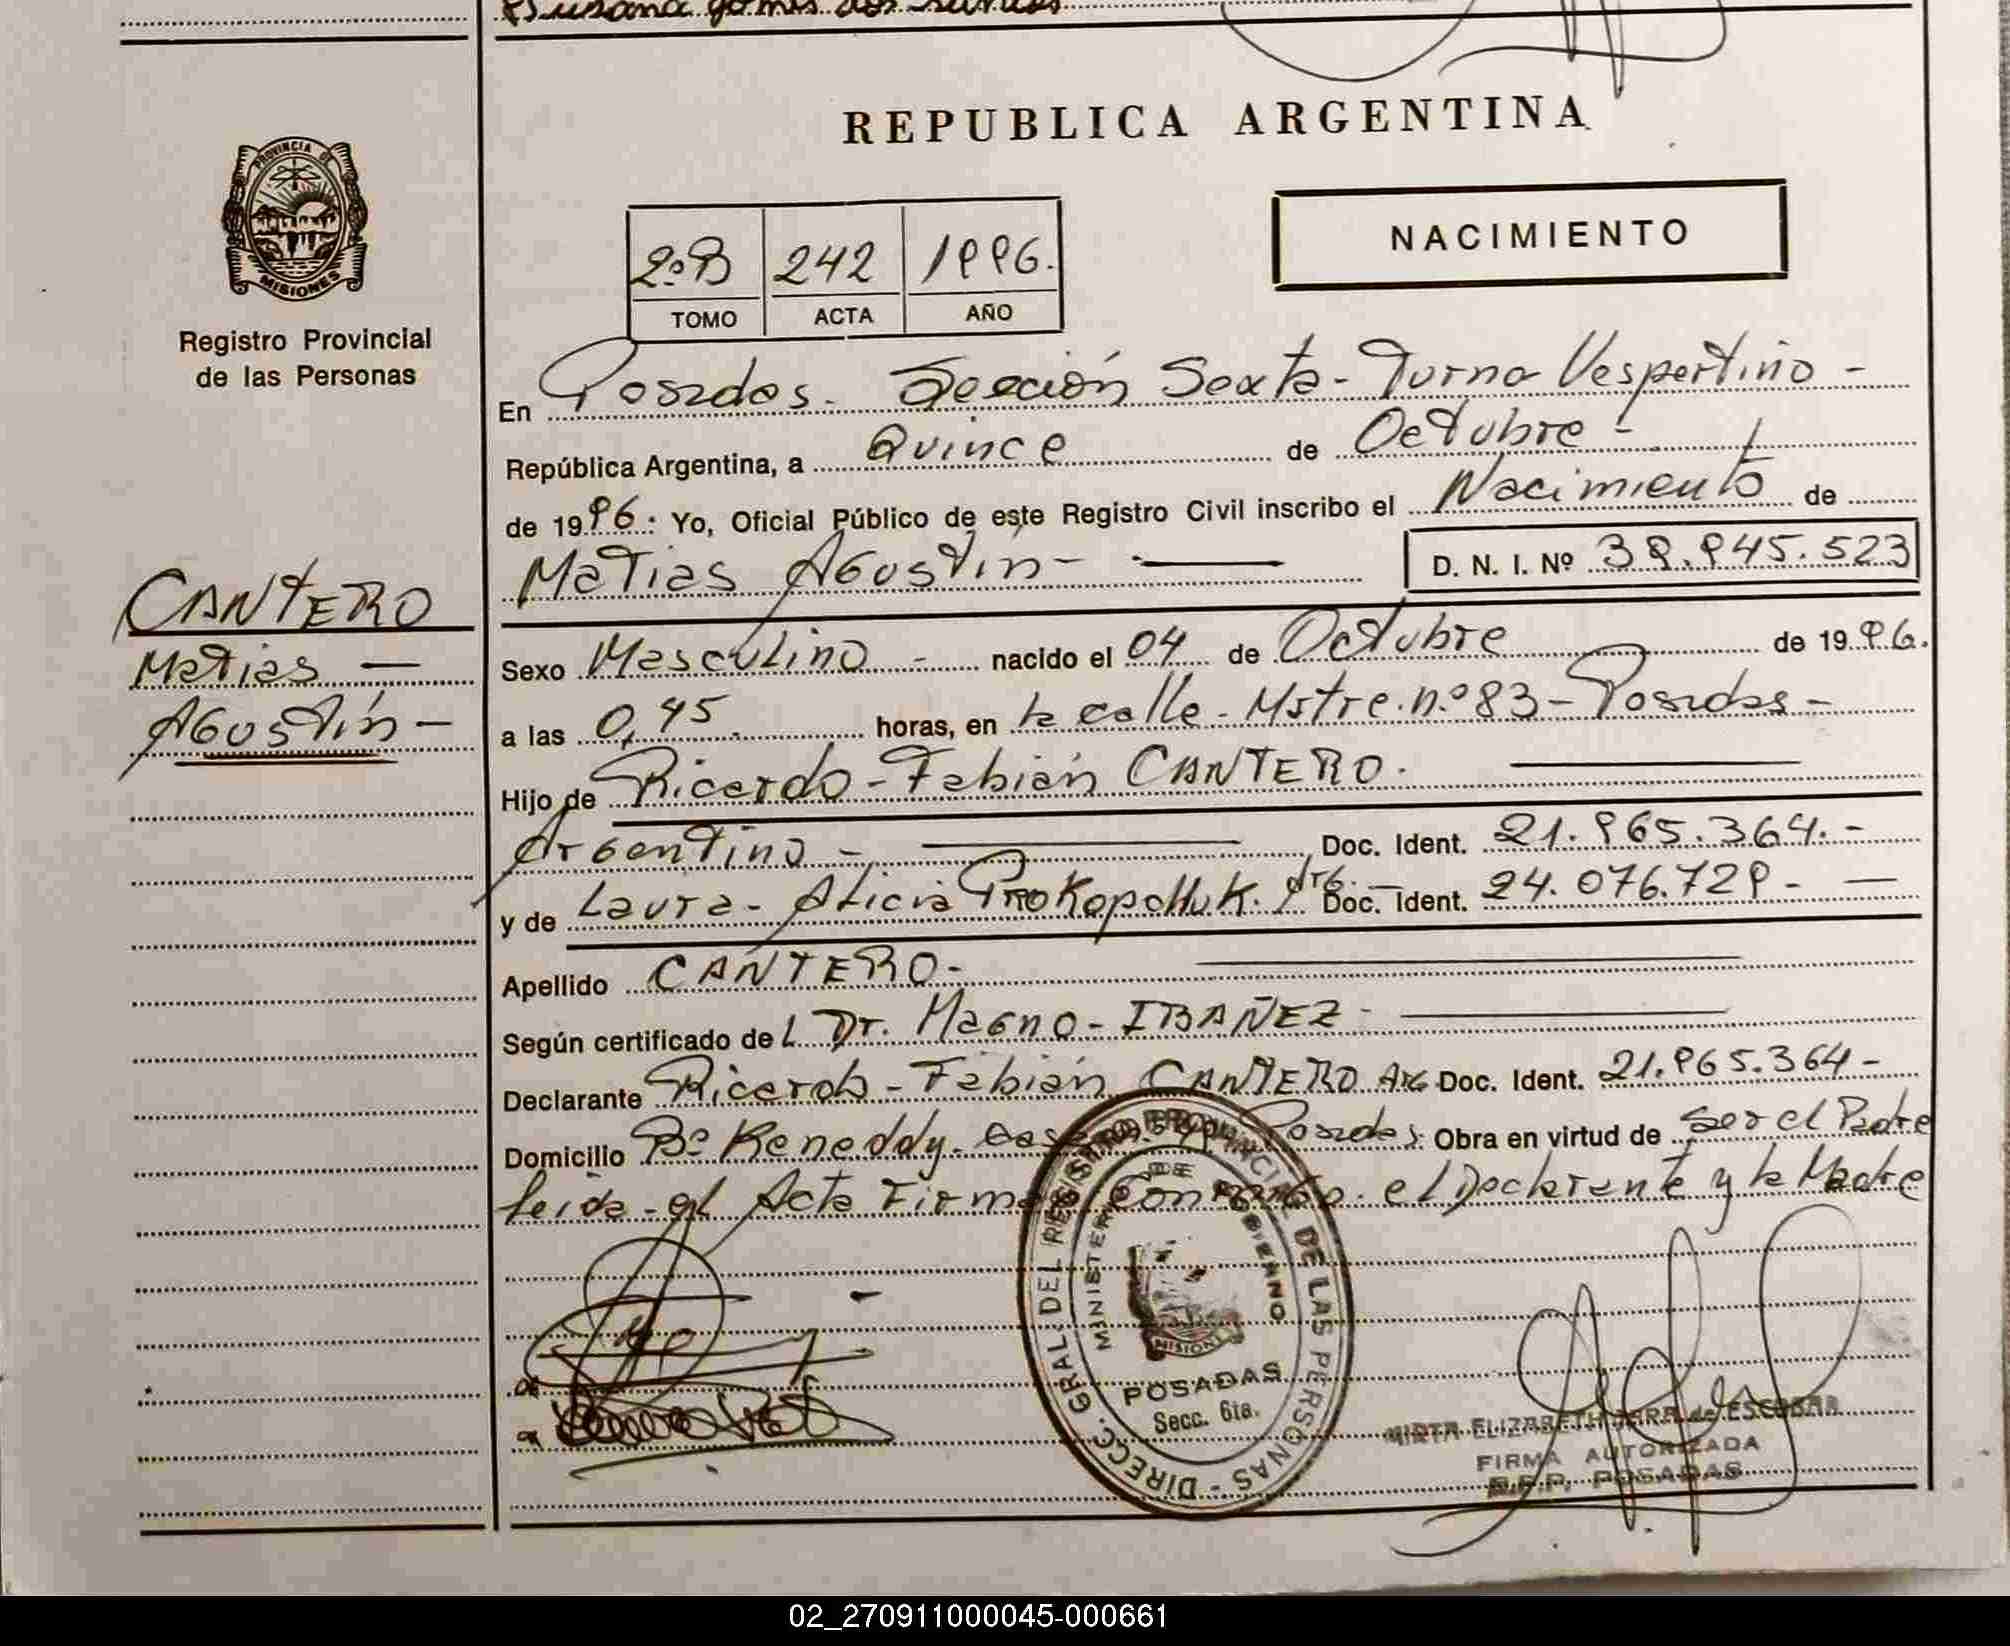 REPUBLICA ARGENTINA
PROVINCIA DE
MISIONES
Registro Provincial
de las Personas
NACIMIENTO
2º B 242 1996.
TOMO ACTA AÑO
En Posadas. Sección Sexta - Turno Vespertino -
República Argentina, a Quince de Octubre -
de 1996. Yo, Oficial Público de este Registro Civil inscribo el Nacimiento de
Matias Agustín - D. N. I. Nº 39.945.523
CANTERO
Matias —
Agustín -
Sexo Masculino - nacido el 04 de Octubre de 1996.
a las 0,45 horas, en la calle - Mstre. nº 83 - Posadas -
Hijo de Ricardo - Fabián CANTERO.
Argentino - Doc. Ident. 21.965.364. -
y de Laura - Alicia Arg. Doc. Ident. 24.076.729 - —
Apellido CANTERO -
Según certificado del Dr. Magno - IBAÑEZ -
Declarante Ricardo - Fabián CANTERO Arg Doc. Ident. 21.965.364 -
Domicilio Bº Keneddy. Posadas. Obra en virtud de ser el Padre
leida el Acta Firman Conmigo. el Declarante y la Madre
DIRECC. GRAL. DEL REGISTRO PROVINCIAL DE LAS PERSONAS -
MINISTERIO DE GOBIERNO
MISIONES
POSADAS
Secc. 6ta.
MIRTA ELIZABETH JARA de ESCOBAR
FIRMA AUTORIZADA
R.P.P. POSADAS
02_270911000045-000661